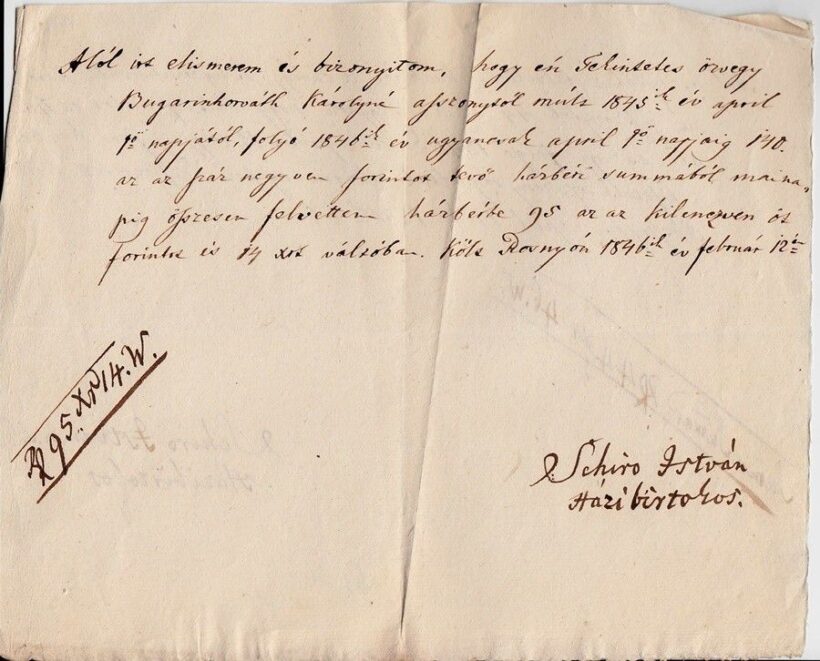 Alól irt elismerem és bizonyitom, hogy én Tekintetes özvegy
Bugarinhorváth Károlyné asszonytól múlt 1845ik év april
1ő napjától, folyó 1846ik év ugyancsak april 1ő napjaig 140.
az az száz negyven forintot tevő házbéri summából maina,,
pig összesen felvettem házbérbe 95 az az kilenczven öt
forintot és 14 xrt váltóban. Költ Rosnyón 1846ik év február 12én
95 Xr 14. W.
Schiro István
Házi birtokos.